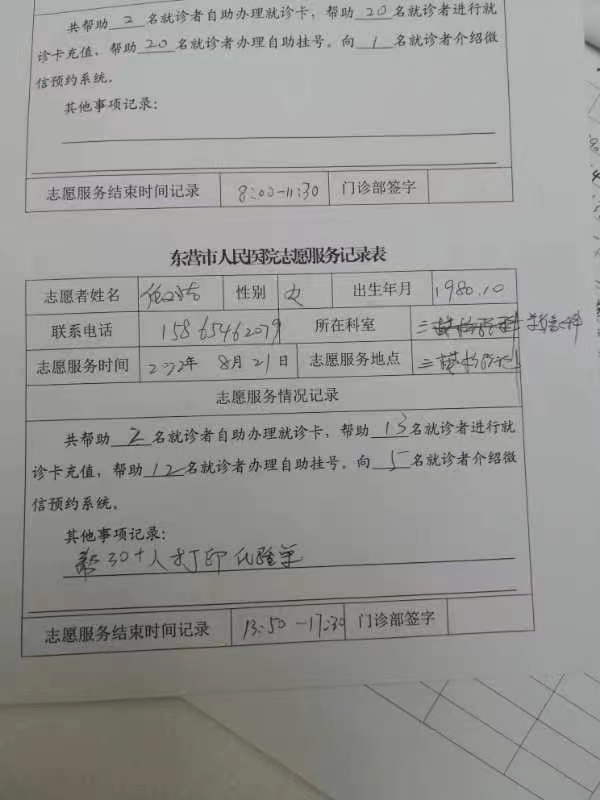 共帮助 2 名就诊者自助办理就诊卡，帮助 20 名就诊者进行就
诊卡充值，帮助 20 名就诊者办理自助挂号。向 1 名就诊者介绍微
信预约系统。
其他事项记录：
志愿服务结束时间记录 8:00-11:30 门诊部签字
东营市人民医院志愿服务记录表
志愿者姓名 性别 女 出生年月 1980.10
联系电话 15865462079 所在科室
志愿服务时间 2022年 8月21日 志愿服务地点
志愿服务情况记录
共帮助 2 名就诊者自助办理就诊卡，帮助 13 名就诊者进行就
诊卡充值，帮助 12 名就诊者办理自助挂号。向 5 名就诊者介绍微
信预约系统。
其他事项记录：
帮30+人打印化验单
志愿服务结束时间记录 13:50-17:30 门诊部签字